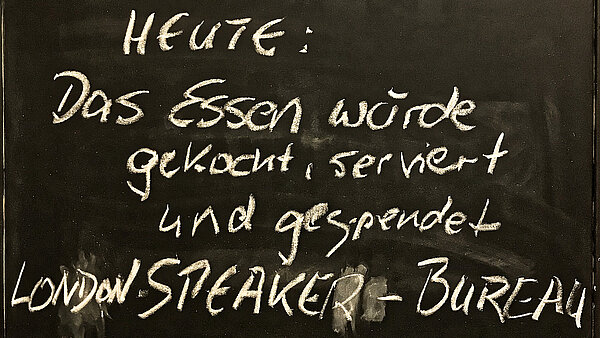 HEUTE:
Das Essen wŭrde
gekocht, serviert
und gespendet
LONDON SPEAKER - BUREAU